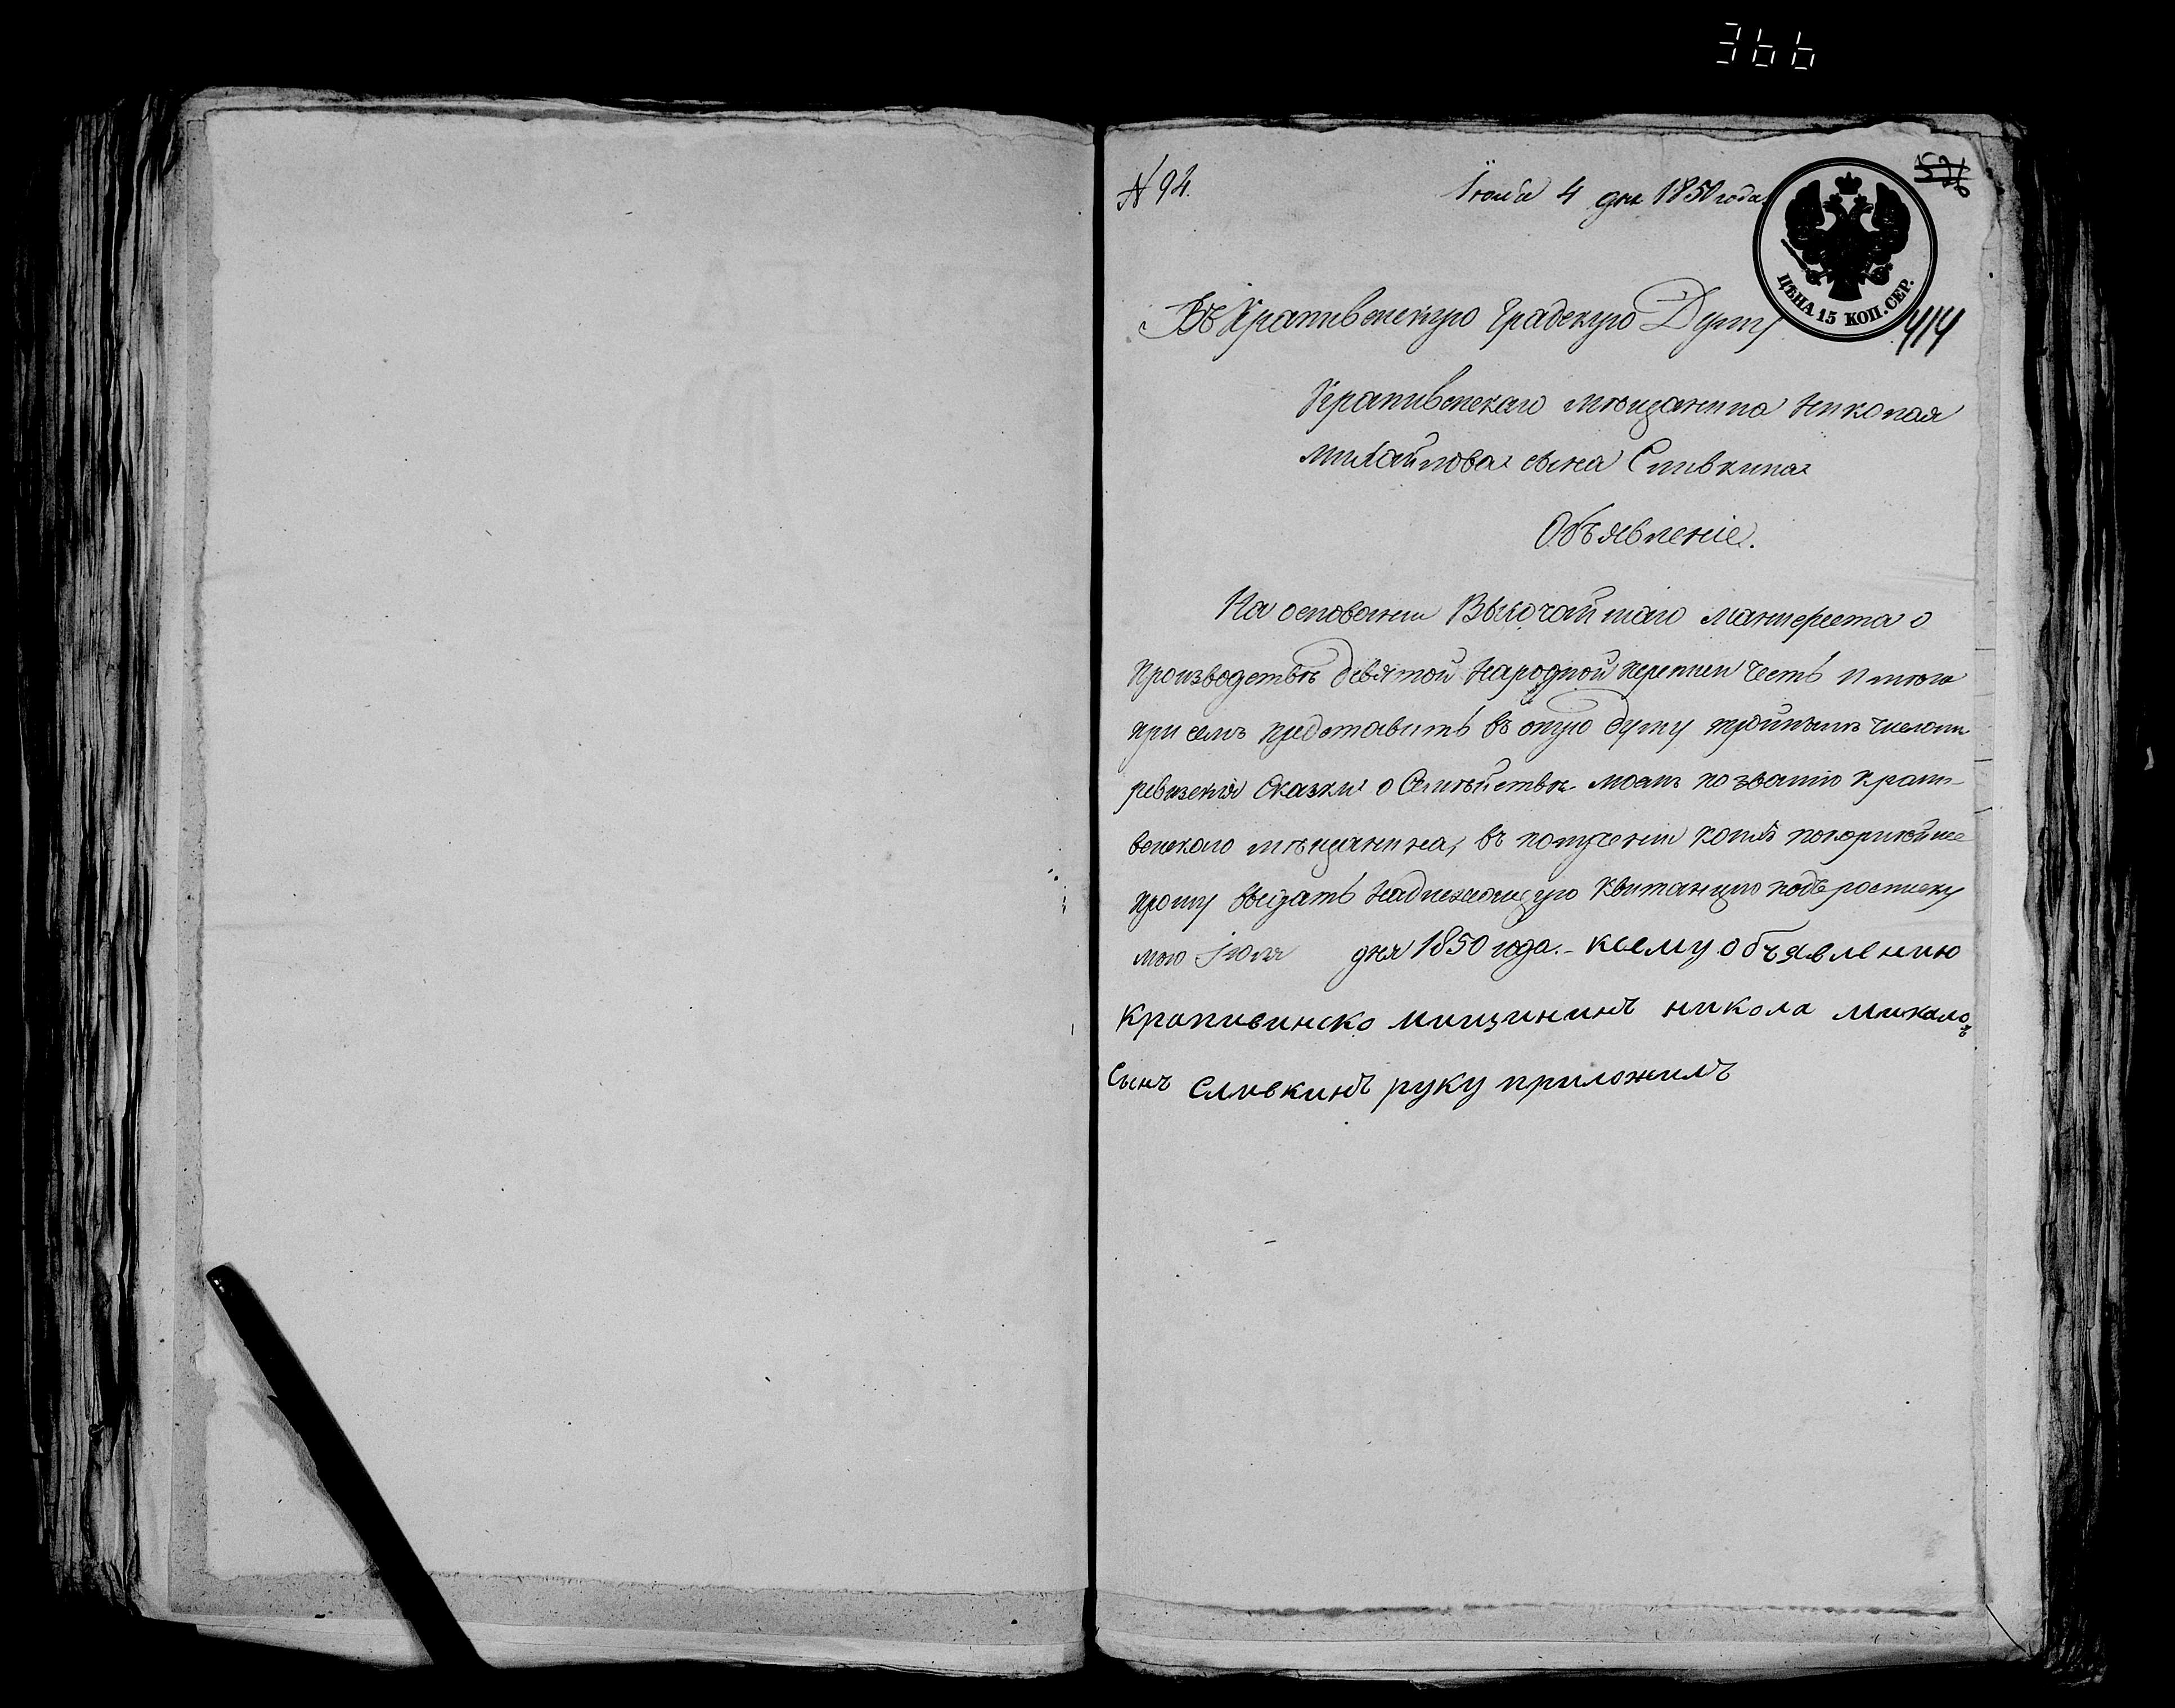 366
№ 94.
Іюля 4 дня 1850 года
526
ЦѢНА 15 КОП. СЕР.
414
Въ Крапивенскую Градскую Думу
Крапивенскаго мѣщанина Николая
Михайлова сына Сливкина
Объявленіе.
На основании Высочайшаго манифеста о
производствѣ девятой народной переписи честь имѣю
при семъ представить въ оную думу тройнымъ числомъ
ревизскія сказки о семѣйствѣ моемъ по званію крапи-
венскаго мѣщанина, въ получении коихъ покорнѣйше
прошу выдать надлежащую квитанцию подъ росписку
мою Іюля дня 1850 года. - ксему объявлению
крапивинско мищининъ никола михало
въ
сынъ сливкинъ руку приложилъ